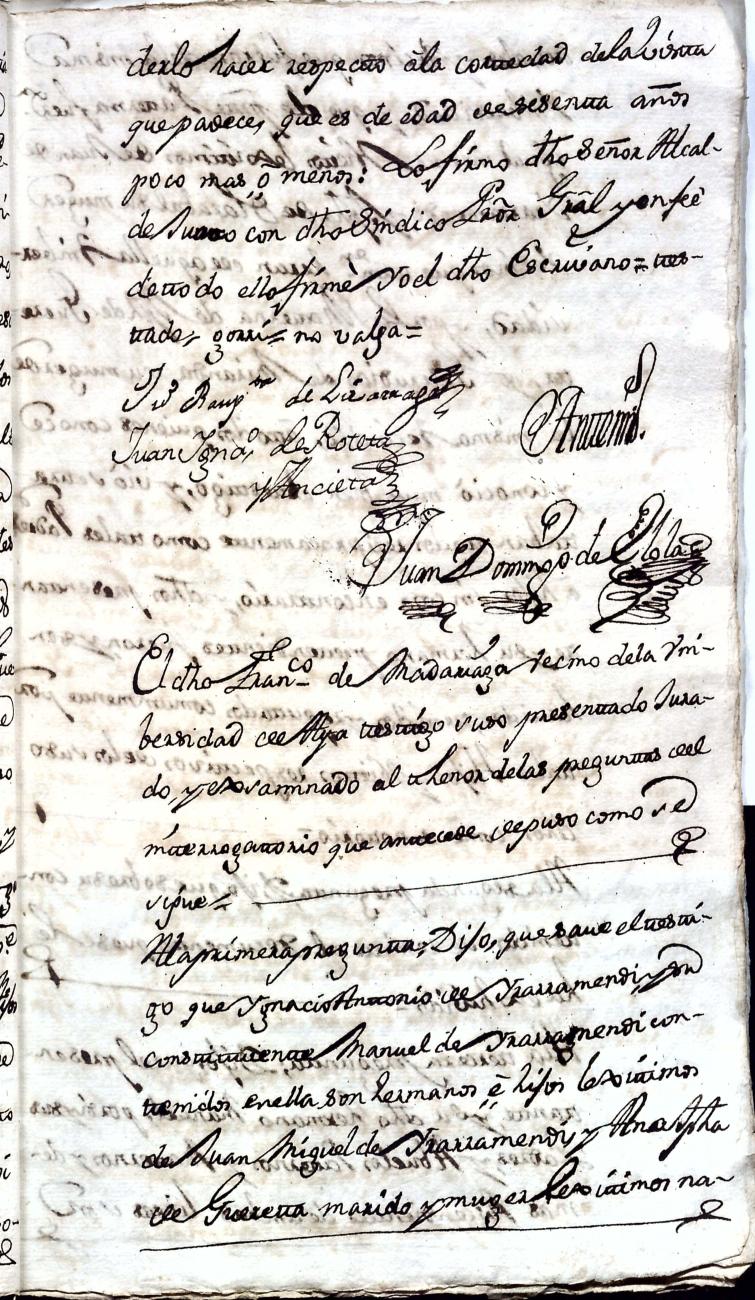 derlo hacer respecto â la cortedad dela Vista
que padece, que es de edad de sesenta años
poco mas, ô menos: Lo firmo dho Señor Alcal-
de Junto con dho Sindico Prōr Grāl y en feè
detodo ello firmè Yo el dho Escrivano = tes-
tado, no valga =
Jn Baupta de Lizarraga
Antemi.
Juan Ignao de Roteta
y Ancieta
Juan Domingo de Elola
El dho Franco de Madariaga vecino dela Vni-
bersidad de Aya testigo suso presentado Jura-
do, y exsaminado al thenor delas preguntas del
interrogatorio que antecede depuso como se
sigue =
Ala primera pregunta, Dijo, que save el testi-
go que Ygnacio Antonio de Yrarramendi, y su
constituiente Manuel de Yrarramendi con-
tenidos en ella son hermanos è hijos lexitimos
de Juan Miguel de Yrarramendi, y Ana Jpha
de Guereta marido y muger Lexitimos na-